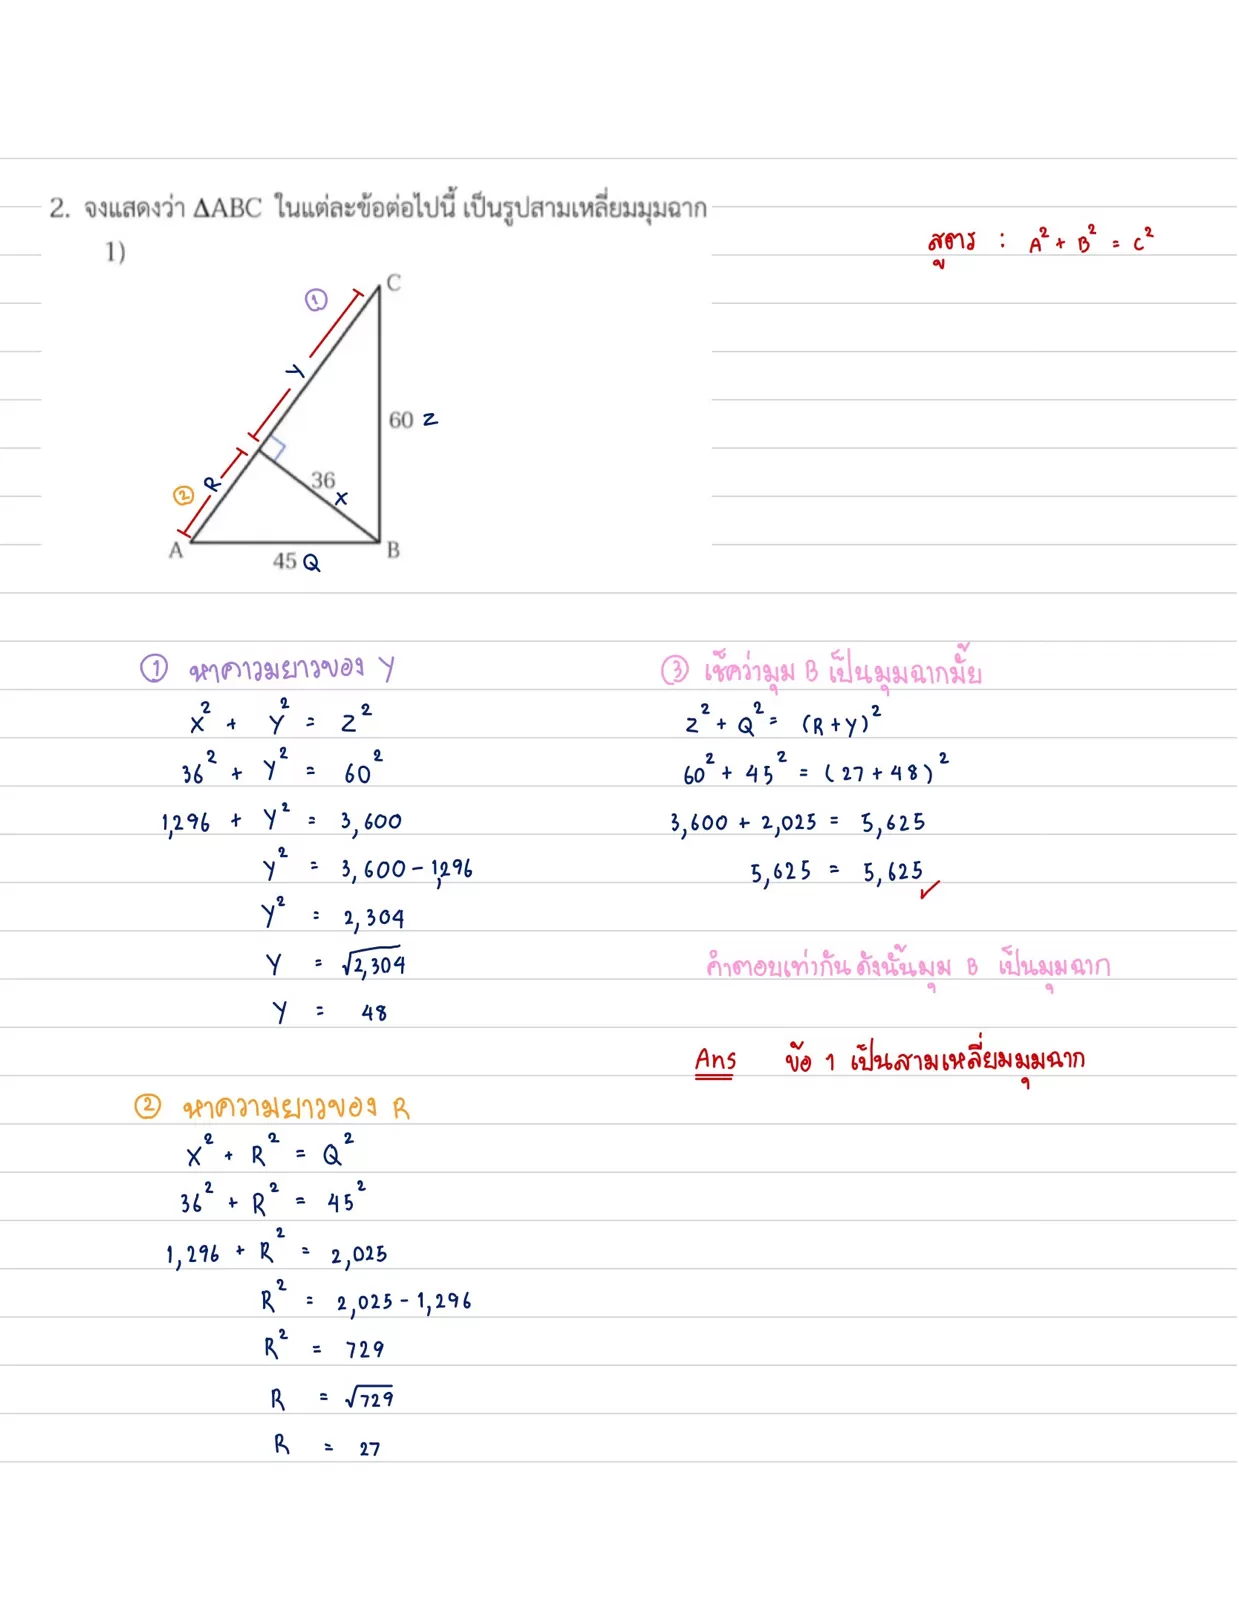 2. จงแสดงว่า ΔABC ในแต่ละข้อต่อไปนี้ เป็นรูปสามเหลี่ยมมุมฉาก
สูตร : A² + B² = C²
1)
① C
Y
60 Z
② R
36 X
A 45 Q B
① หาความยาวของ Y
X² + Y² = Z²
36² + Y² = 60²
1,296 + Y² = 3,600
Y² = 3,600 - 1,296
Y² = 2,304
Y = √2,304
Y = 48
② หาความยาวของ R
X² + R² = Q²
36² + R² = 45²
1,296 + R² = 2,025
R² = 2,025 - 1,296
R² = 729
R = √729
R = 27
③ เช็คว่ามุม B เป็นมุมฉากมั้ย
Z² + Q² = (R+Y)²
60² + 45² = (27+48)²
3,600 + 2,025 = 5,625
5,625 = 5,625 ✓
คำตอบเท่ากัน ดังนั้นมุม B เป็นมุมฉาก
Ans ข้อ 1 เป็นสามเหลี่ยมมุมฉาก